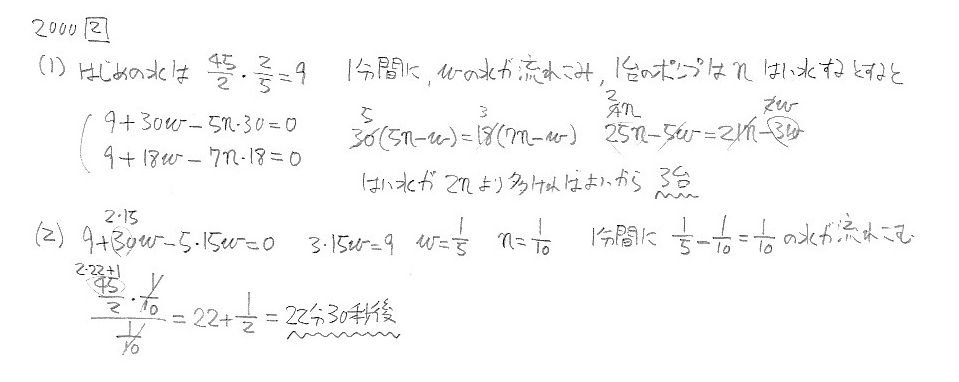 2000 2
(1) はじめの水は 45/2・2/5=9 1分間に, wの水が流れこみ, 1台のポンプはn はい水するとすると
9+30w-5n・30=0 5 30(5n-w)=3 18(7n-w) 2 4n 25n-5w=21n-3w 2w
9+18w-7n・18=0
はい水が2nより多ければよいから 3台
2・15
(2) 9+30w-5・15w=0 3・15w=9 w=1/5 n=1/10 1分間に 1/5-1/10=1/10 の水が流れこむ
2・22+1
(45/2・1/10)/(1/10)=22+1/2=22分30秒後